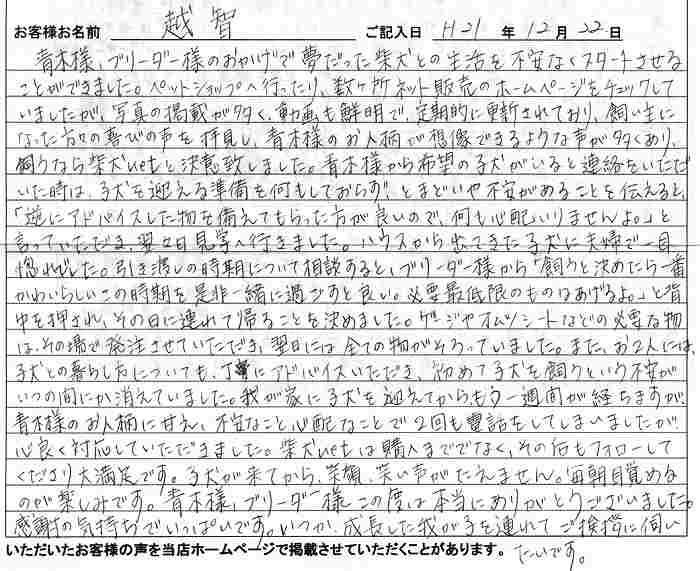 お客様お名前 越智 ご記入日 H21 年 12 月 22 日
青木様、ブリーダー様のおかげで夢だった柴犬との生活を不安なくスタートさせる
ことができました。ペットショップへ行ったり、数ヶ所ネット販売のホームページをチェックして
いましたが、写真の掲載が多く、動画も鮮明で、定期的に更新されており、飼い主に
なった方々の喜びの声を拝見し、青木様のお人柄が想像できるような声が多くあり、
飼うなら柴犬netと決意致しました。青木様から希望の子犬がいると連絡をいただ
いた時は、子犬を迎える準備を何もしておらず、とまどいや不安があることを伝えると、
「逆にアドバイスした物を備えてもらった方が良いので、何も心配いりませんよ。」と
言っていただき、翌々日見学へ行きました。ハウスから出てきた子犬に夫婦で一目
惚れでした。引き渡しの時期について相談すると、ブリーダー様から「飼うと決めたら一番
かわいらしいこの時期を是非一緒に過ごすと良い。必要最低限のものはあげるよ。」と背
中を押され、その日に連れて帰ることを決めました。ゲージやオムツシートなどの必要な物
は、その場で発注させていただき、翌日には全ての物がそろっていました。また、お2人には、
子犬との暮らし方についても、丁寧にアドバイスいただき、初めて子犬を飼うという不安が
いつの間にか消えていました。我が家に子犬を迎えてからもう一週間が経ちますが、
青木様のお人柄に甘え、不安なこと心配なことで2回も電話をしてしまいましたが
心良く対応していただきました。柴犬netは購入まででなく、その后もフォローして
くださり大満足です。子犬が来てから、笑顔、笑い声がたえません。毎朝目覚める
のが楽しみです。青木様、ブリーダー様この度は本当にありがとうございました。
感謝の気持ちでいっぱいです。いつか、成長した我が子を連れてご挨拶に伺い
たいです。
いただいたお客様の声を当店ホームページで掲載させていただくことがあります。